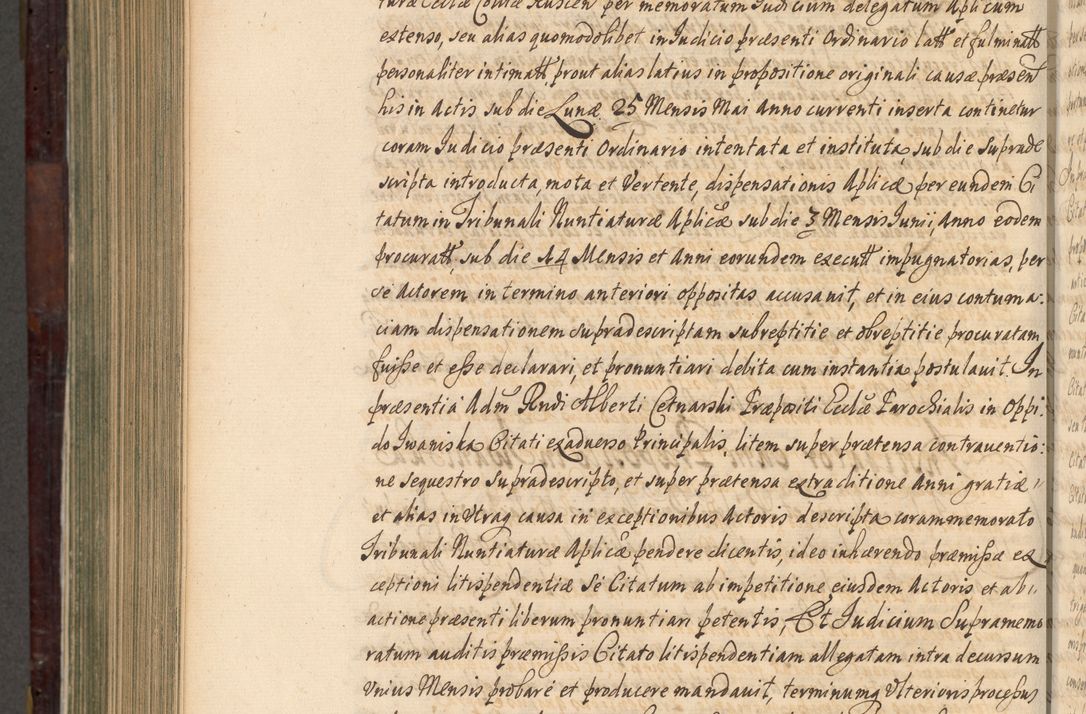 extenso, seu alias quomodolibet in Judicio præsenti Ordinario latt et fulminatt
personaliter intimatt prout alias latius in propositione originali causæ præsen
his in Actis sub die Lunæ 25 Mensis Mai Anno currenti inserta continetur
coram Judicio præsenti Ordinario intentata et instituta, sub die suprade
scripta introducta, mota et Vertente, dispensationis Aplicæ per eundem Ci
tatum in Tribunali Nuntiaturæ Aplicæ sub die 3 Mensis Junii, Anno eodem
procuratt, sub die 14 Mensis et Anni eorundem executt impugnatorias, per
se Actorem in termino anteriori oppositas accusavit, et in eius contuma:
ciam dispensationem supradescriptam subreptitie et obreptitie procuratam
fuisse et esse declarari, et pronuntiari debita cum instantia postulavit. In
præsentia Adm Rndi Alberti Cetnarski Præpositi Ecclæ Parochialis in Oppi
do Iwaniska Citati ex adverso Principalis, litem super prætensa contraventio:
ne sequestro supradescripto, et super prætensa extraditione Anni gratiæ
et alias in Utraq causa in exceptionibus Actoris descripta coram memorato
Tribunali Nuntiaturæ Aplicæ pendere dicentis, ideo inhærendo præmissæ ex
ceptioni litispendentiæ se Citatum ab impetitione eiusdem Actoris et ab
actione præsenti liberum pronuntiari petentis, Et Judicium Supramemo
ratum auditis præmissis Citato litispendentiam allegatam intra decursum
Unius Mensis probare et producere mandavit, terminumq Ulterioris processus